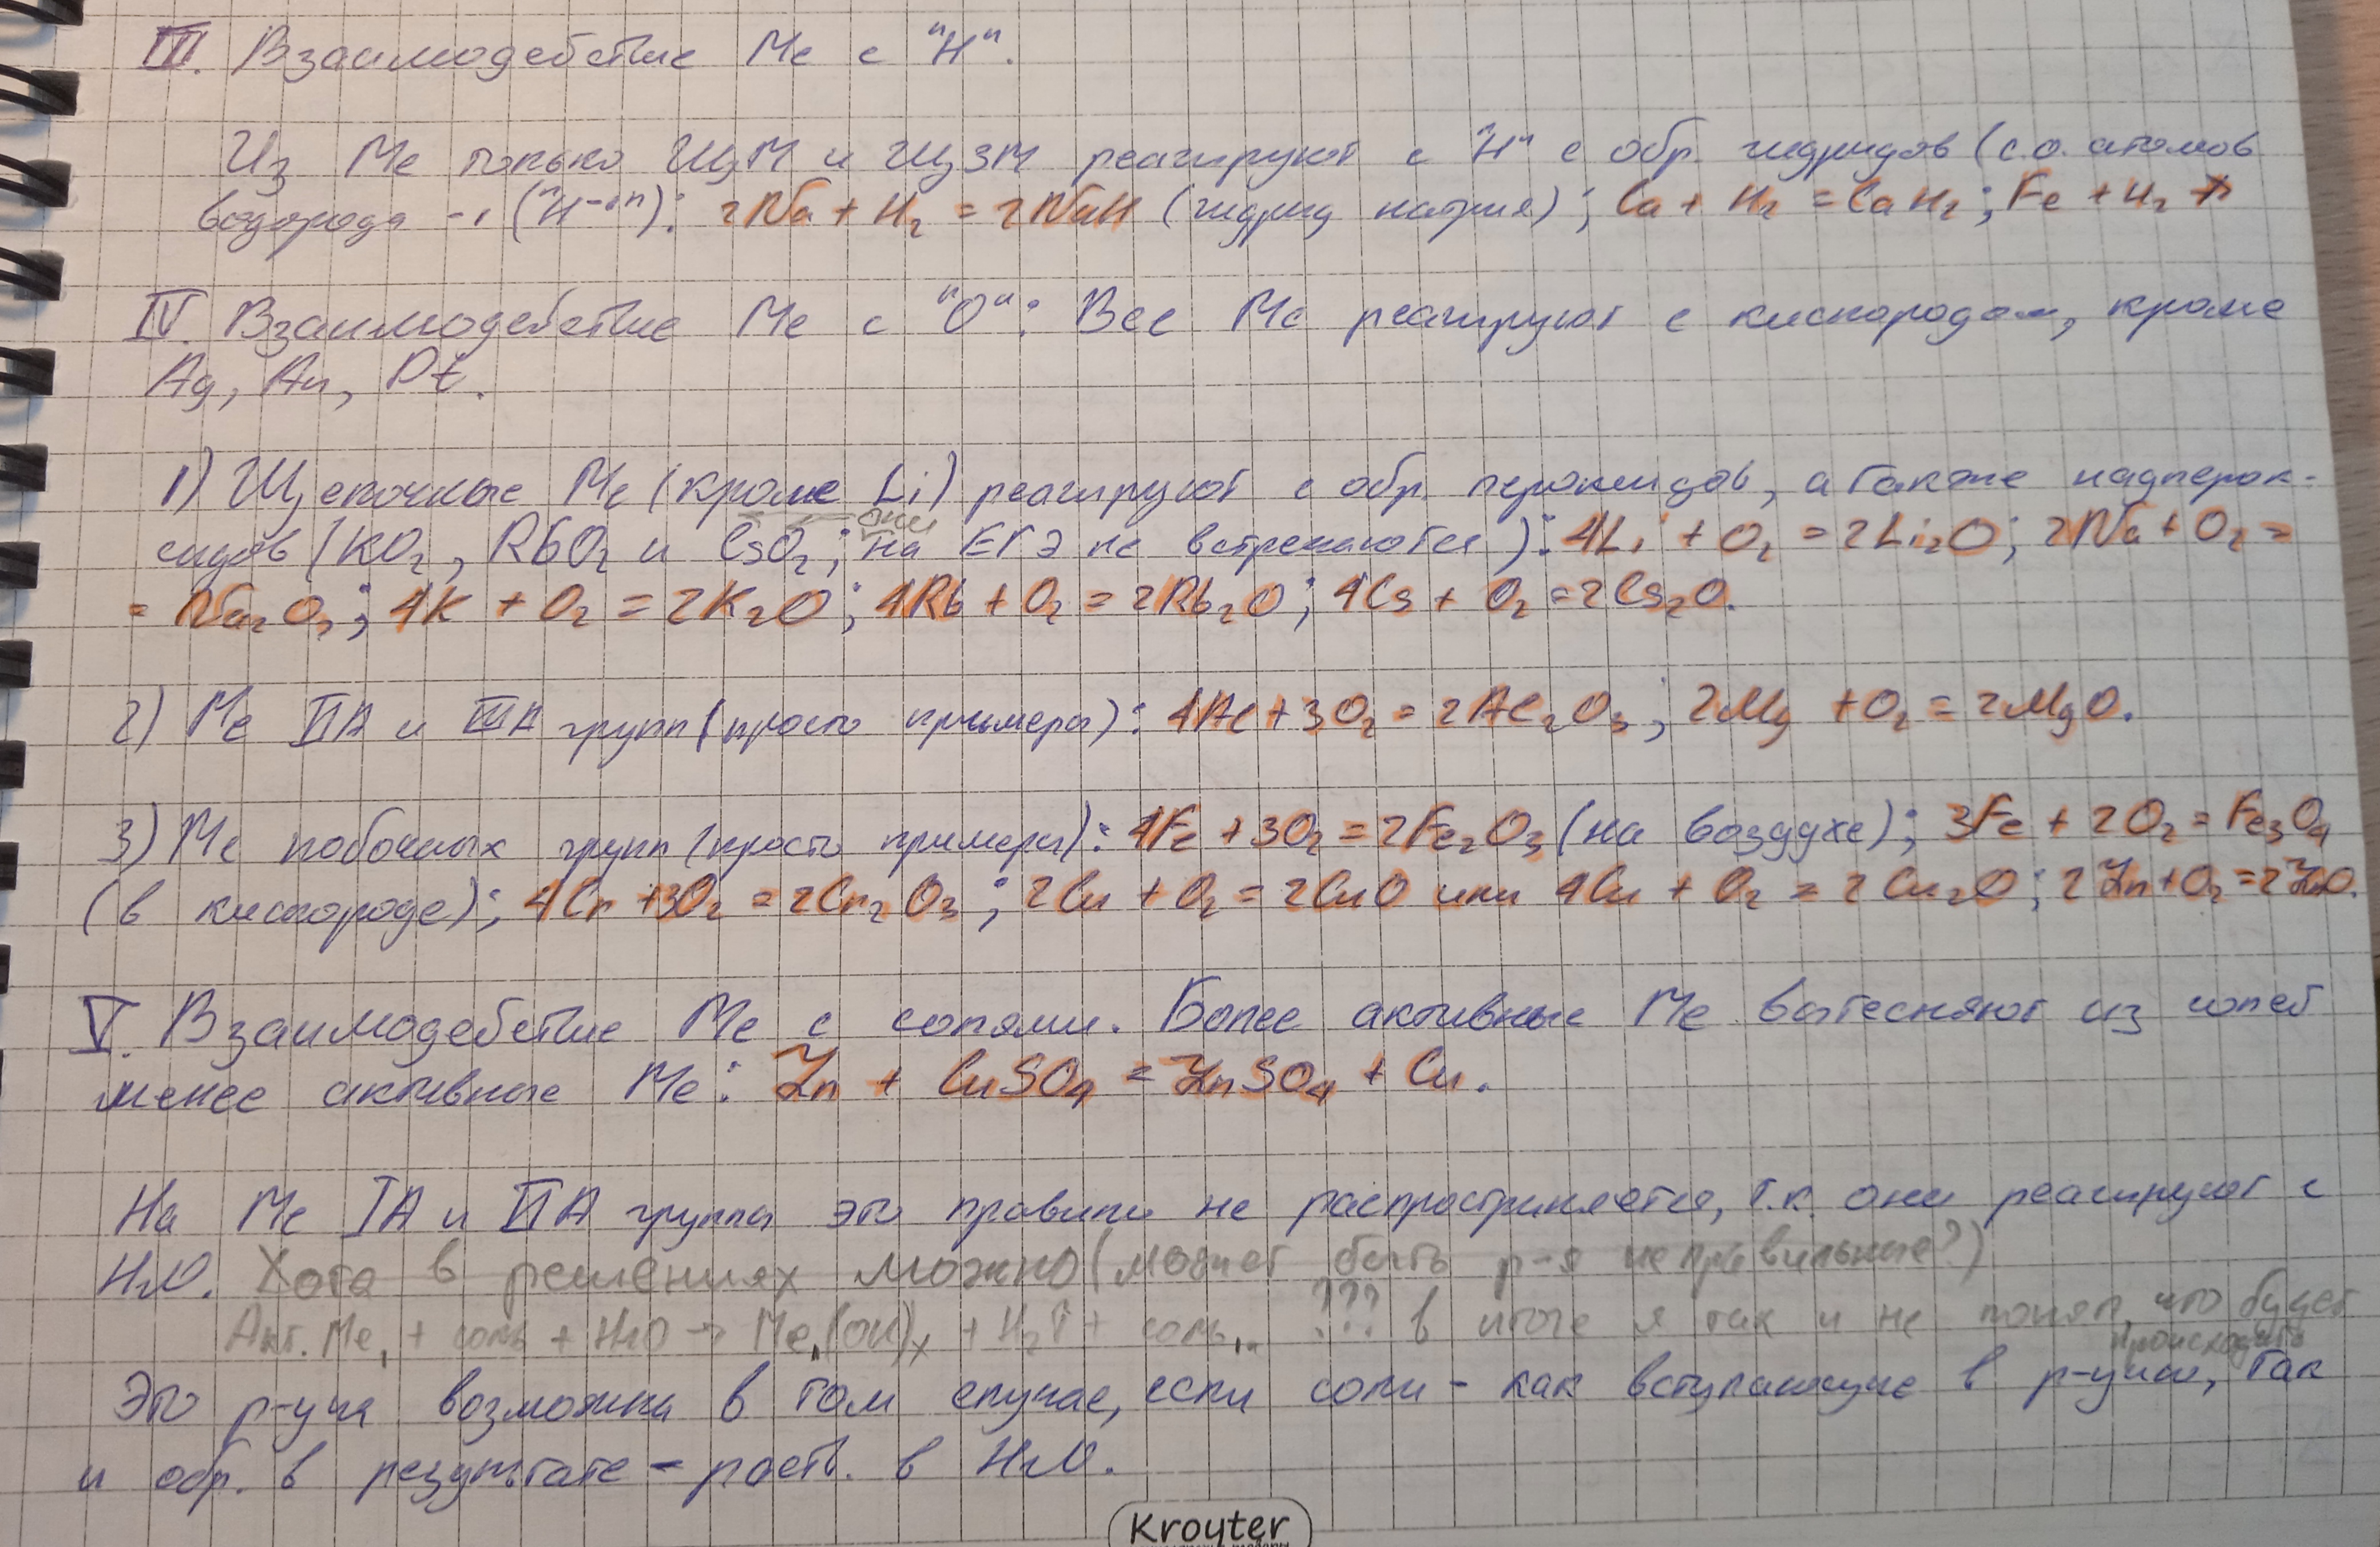 III. Взаимодействие Ме с "Н".
Из Ме только ЩМ и ЩЗМ реагируют с "Н" с обр. гидридов (с.о. атомов
водорода -1 ("Н⁻¹"): 2Na + H₂ = 2NaH (гидрид натрия); Ca + H₂ = CaH₂; Fe + H₂ ↛
IV. Взаимодействие Ме с "О": Все Ме реагируют с кислородом, кроме
Ag, Au, Pt.
1) Щелочные Ме (кроме Li) реагируют с обр. пероксидов, а также надперок-
сидов (KO₂, RbO₂ и CsO₂; они на ЕГЭ не встречаются): 4Li + O₂ = 2Li₂O; 2Na + O₂ =
= Na₂O₂; 4K + O₂ = 2K₂O; 4Rb + O₂ = 2Rb₂O; 4Cs + O₂ = 2Cs₂O.
2) Ме IIА и IIIА групп (просто примеры): 4Al + 3O₂ = 2Al₂O₃; 2Mg + O₂ = 2MgO.
3) Ме побочных групп (просто примеры): 4Fe + 3O₂ = 2Fe₂O₃ (на воздухе); 3Fe + 2O₂ = Fe₃O₄
(в кислороде); 4Cr + 3O₂ = 2Cr₂O₃; 2Cu + O₂ = 2CuO или 4Cu + O₂ = 2Cu₂O; 2Zn + O₂ = 2ZnO.
V. Взаимодействие Ме с солями. Более активные Ме вытесняют из солей
менее активные Ме: Zn + CuSO₄ = ZnSO₄ + Cu.
На Ме IА и IIА группы это правило не распространяется, т.к. они реагируют с
H₂O. Хотя в решениях можно (может быть р-я неправильные?)
Акт. Ме, + соль + H₂O → Me(OH)ₓ + H₂↑ + соль... ??? в итоге я так и не понял, что будет
происходить
Это р-ция возможна в том случае, если соли - как вступающие в р-цию, так
и обр. в результате - раств. в H₂O.
Kroyter